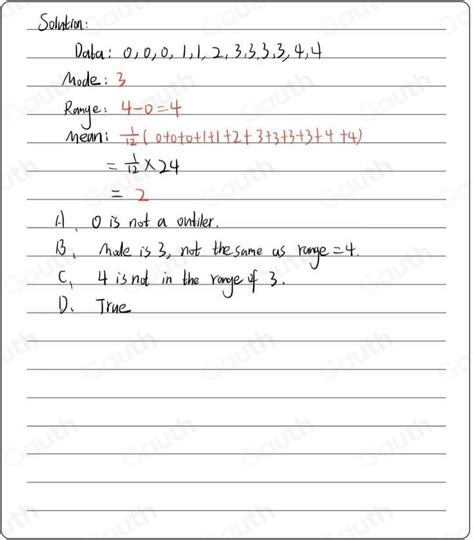 Solution:
Data: 0, 0, 0, 1, 1, 2, 3, 3, 3, 3, 4, 4
Mode: 3
Range: 4-0=4
Mean: 1/12 (0+0+0+1+1+2+3+3+3+3+4+4)
= 1/12 × 24
= 2
A. 0 is not a outlier.
B. Mode is 3, not the same as range = 4.
C. 4 is not in the range of 3.
D. True
Gauth